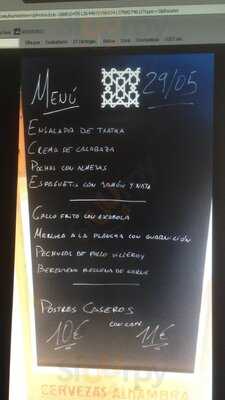 MENÚ 29/05
ENSALADA DE TEATRA
CREMA DE CALABAZA
POCHAS CON ALMEJAS
ESPAGUETI CON JAMÓN Y NATA
GALLO FRITO CON ESCAROLA
MERLUZA A LA PLANCHA CON GUARNICIÓN
PECHUGAS DE POLLO VILLEROY
BERENJENA RELLENA DE CARNE
POSTRES CASEROS
10€ CON CAFE 11€
CERVEZAS ALHAMBRA